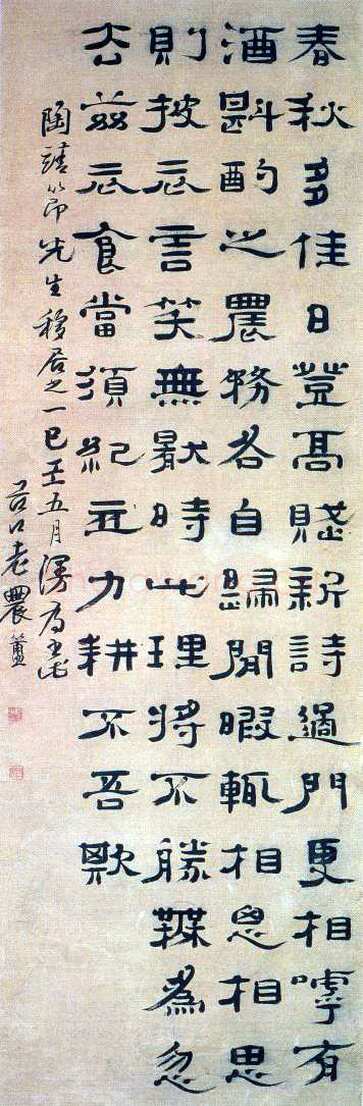 春秋多佳日登高賦新詩過門更相嘑有
酒斟酌之農務各自歸閒暇輒相思相思
則披衣言笑無厭時此理將不勝為忽
去茲衣食當須紀力耕不吾欺
陶靖節先生移居之一五月漫為
谷口老農簠